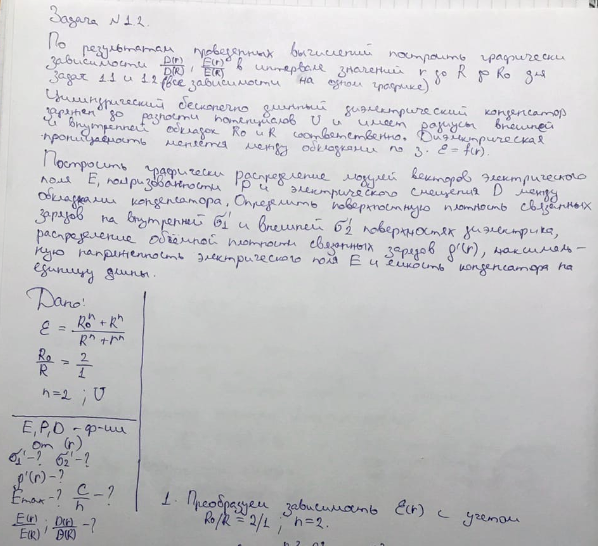 Задача №1.2.
По результатам проведенных вычислений построить графически
зависимости D(r)/D(R); E(r)/E(R) в интервале значений r до R до R₀ для
задач 1.1 и 1.2 (все зависимости на одном графике)
Цилиндрический бесконечно длинный диэлектрический конденсатор
заряжен до разности потенциалов U и имеет радиусы внешней
и внутренней обкладок R₀ и R соответственно. Диэлектрическая
проницаемость меняется между обкладками по з. ε = f(r).
Построить графически распределение модулей векторов электрического
поля E, поляризованности P и электрического смещения D между
обкладками конденсатора. Определить поверхностную плотность связанных
зарядов на внутренней σ₁' и внешней σ₂' поверхностях диэлектрика,
распределение объёмной плотности связанных зарядов ρ'(r), максималь-
ную напряженность электрического поля E и ёмкость конденсатора на
единицу длины.
Дано:
ε = (R₀ⁿ + Rⁿ)/(Rⁿ + rⁿ)
R₀/R = 2/1
n=2 ; U
E, P, D - ф-ии
от (r)
σ₁'-? σ₂'-?
ρ'(r) -?
Emax-? C/h -?
E(r)/E(R); D(r)/D(R) -?
1. Преобразуем зависимость ε(r) с учетом
R₀/R = 2/1 ; n=2.